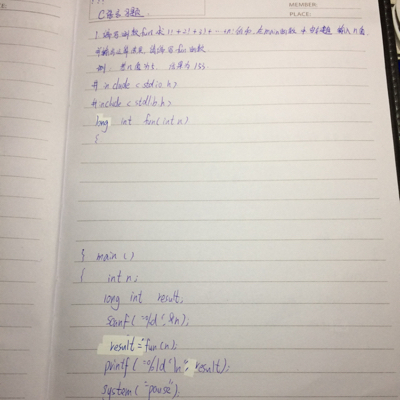 MEMBER:
PLACE:
C语言 3题.
1 编写函数fun求 1!+2!+3!+ … +n! 的和, 在main函数中由键盘输入n值
并输出运算结果. 请编写 fun 函数
例: 若n值为5 结果为153
# include <stdio.h>
# include <stdlib.h>
long int fun(int n)
{
} main ()
{ int n;
long int result;
scanf("%d", &n);
result = fun(n);
printf("%ld\n", result);
system("pause");